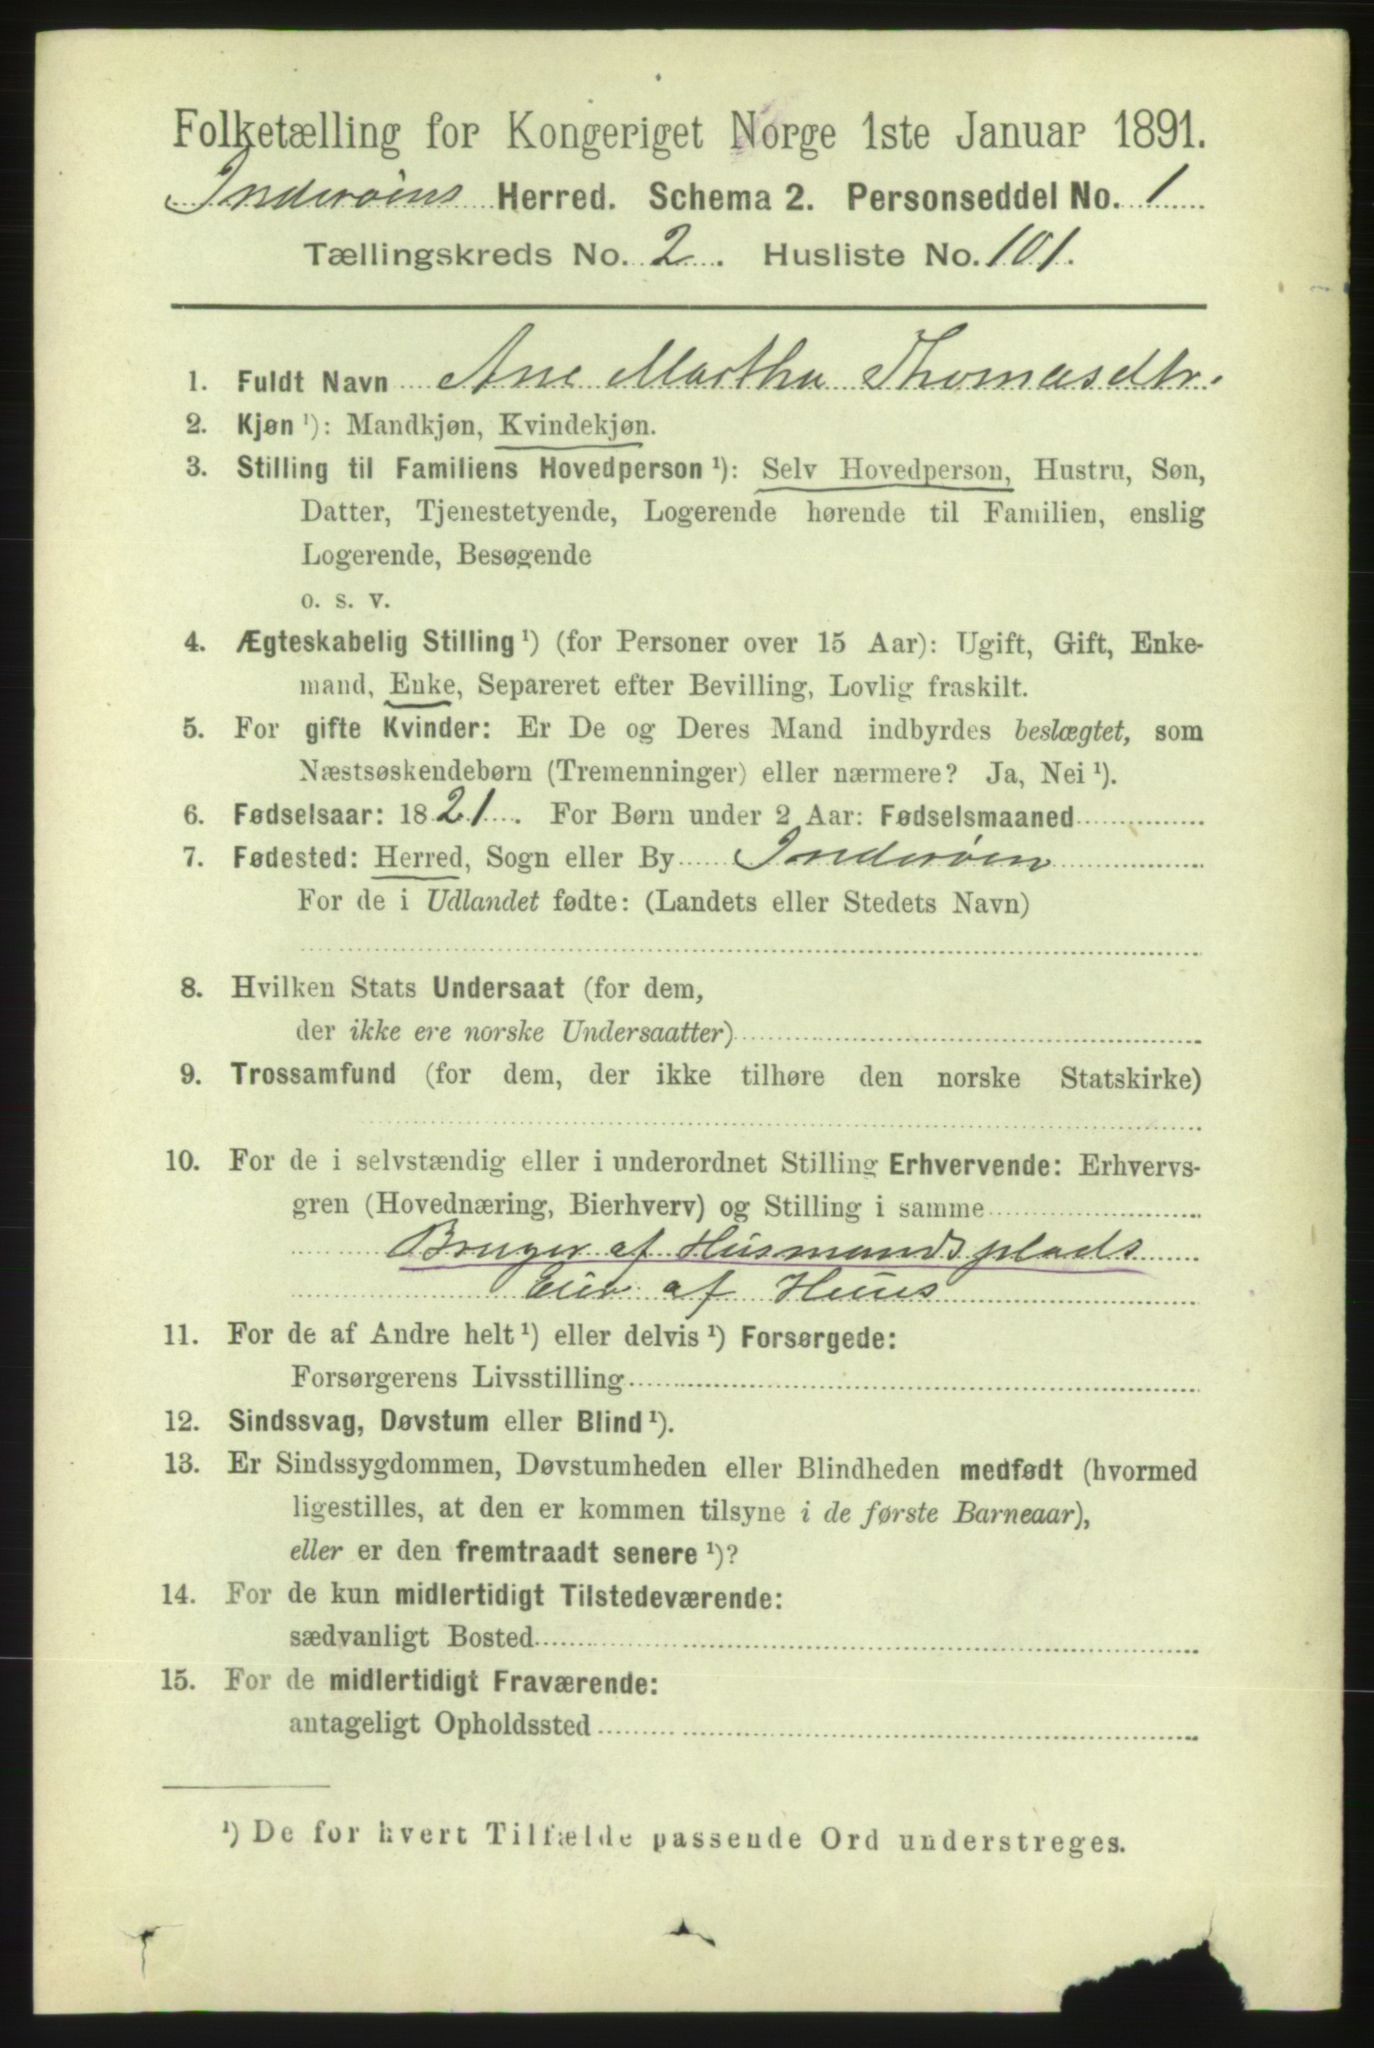 Folketælling for Kongeriget Norge 1ste Januar 1891.
Inderøens Herred. Schema 2. Personseddel No. 1
Tællingskreds No. 2. Husliste No. 101.
1. Fuldt Navn Ane Martha Thomasdtr.
2. Kjøn ¹): Mandkjøn, Kvindekjøn.
3. Stilling til Familiens Hovedperson ¹): Selv Hovedperson, Hustru, Søn,
Datter, Tjenestetyende, Logerende hørende til Familien, enslig
Logerende, Besøgende
o. s. v.
4. Ægteskabelig Stilling ¹) (for Personer over 15 Aar): Ugift, Gift, Enke-
mand, Enke, Separeret efter Bevilling, Lovlig fraskilt.
5. For gifte Kvinder: Er De og Deres Mand indbyrdes beslægtet, som
Næstsøskendebørn (Tremenninger) eller nærmere? Ja, Nei ¹).
6. Fødselsaar: 1821. For Børn under 2 Aar: Fødselsmaaned
7. Fødested: Herred, Sogn eller By Inderøen
For de i Udlandet fødte: (Landets eller Stedets Navn)
8. Hvilken Stats Undersaat (for dem,
der ikke ere norske Undersaatter)
9. Trossamfund (for dem, der ikke tilhøre den norske Statskirke)
10. For de i selvstændig eller i underordnet Stilling Erhvervende: Erhvervs-
gren (Hovednæring, Bierhverv) og Stilling i samme
Bruger af Husmandsplads
Eier af Huus
11. For de af Andre helt ¹) eller delvis ¹) Forsørgede:
Forsørgerens Livsstilling
12. Sindssvag, Døvstum eller Blind ¹).
13. Er Sindssygdommen, Døvstumheden eller Blindheden medfødt (hvormed
ligestilles, at den er kommen tilsyne i de første Barneaar),
eller er den fremtraadt senere ¹)?
14. For de kun midlertidigt Tilstedeværende:
sædvanligt Bosted
15. For de midlertidigt Fraværende:
antageligt Opholdssted
¹) De for hvert Tilfælde passende Ord understreges.